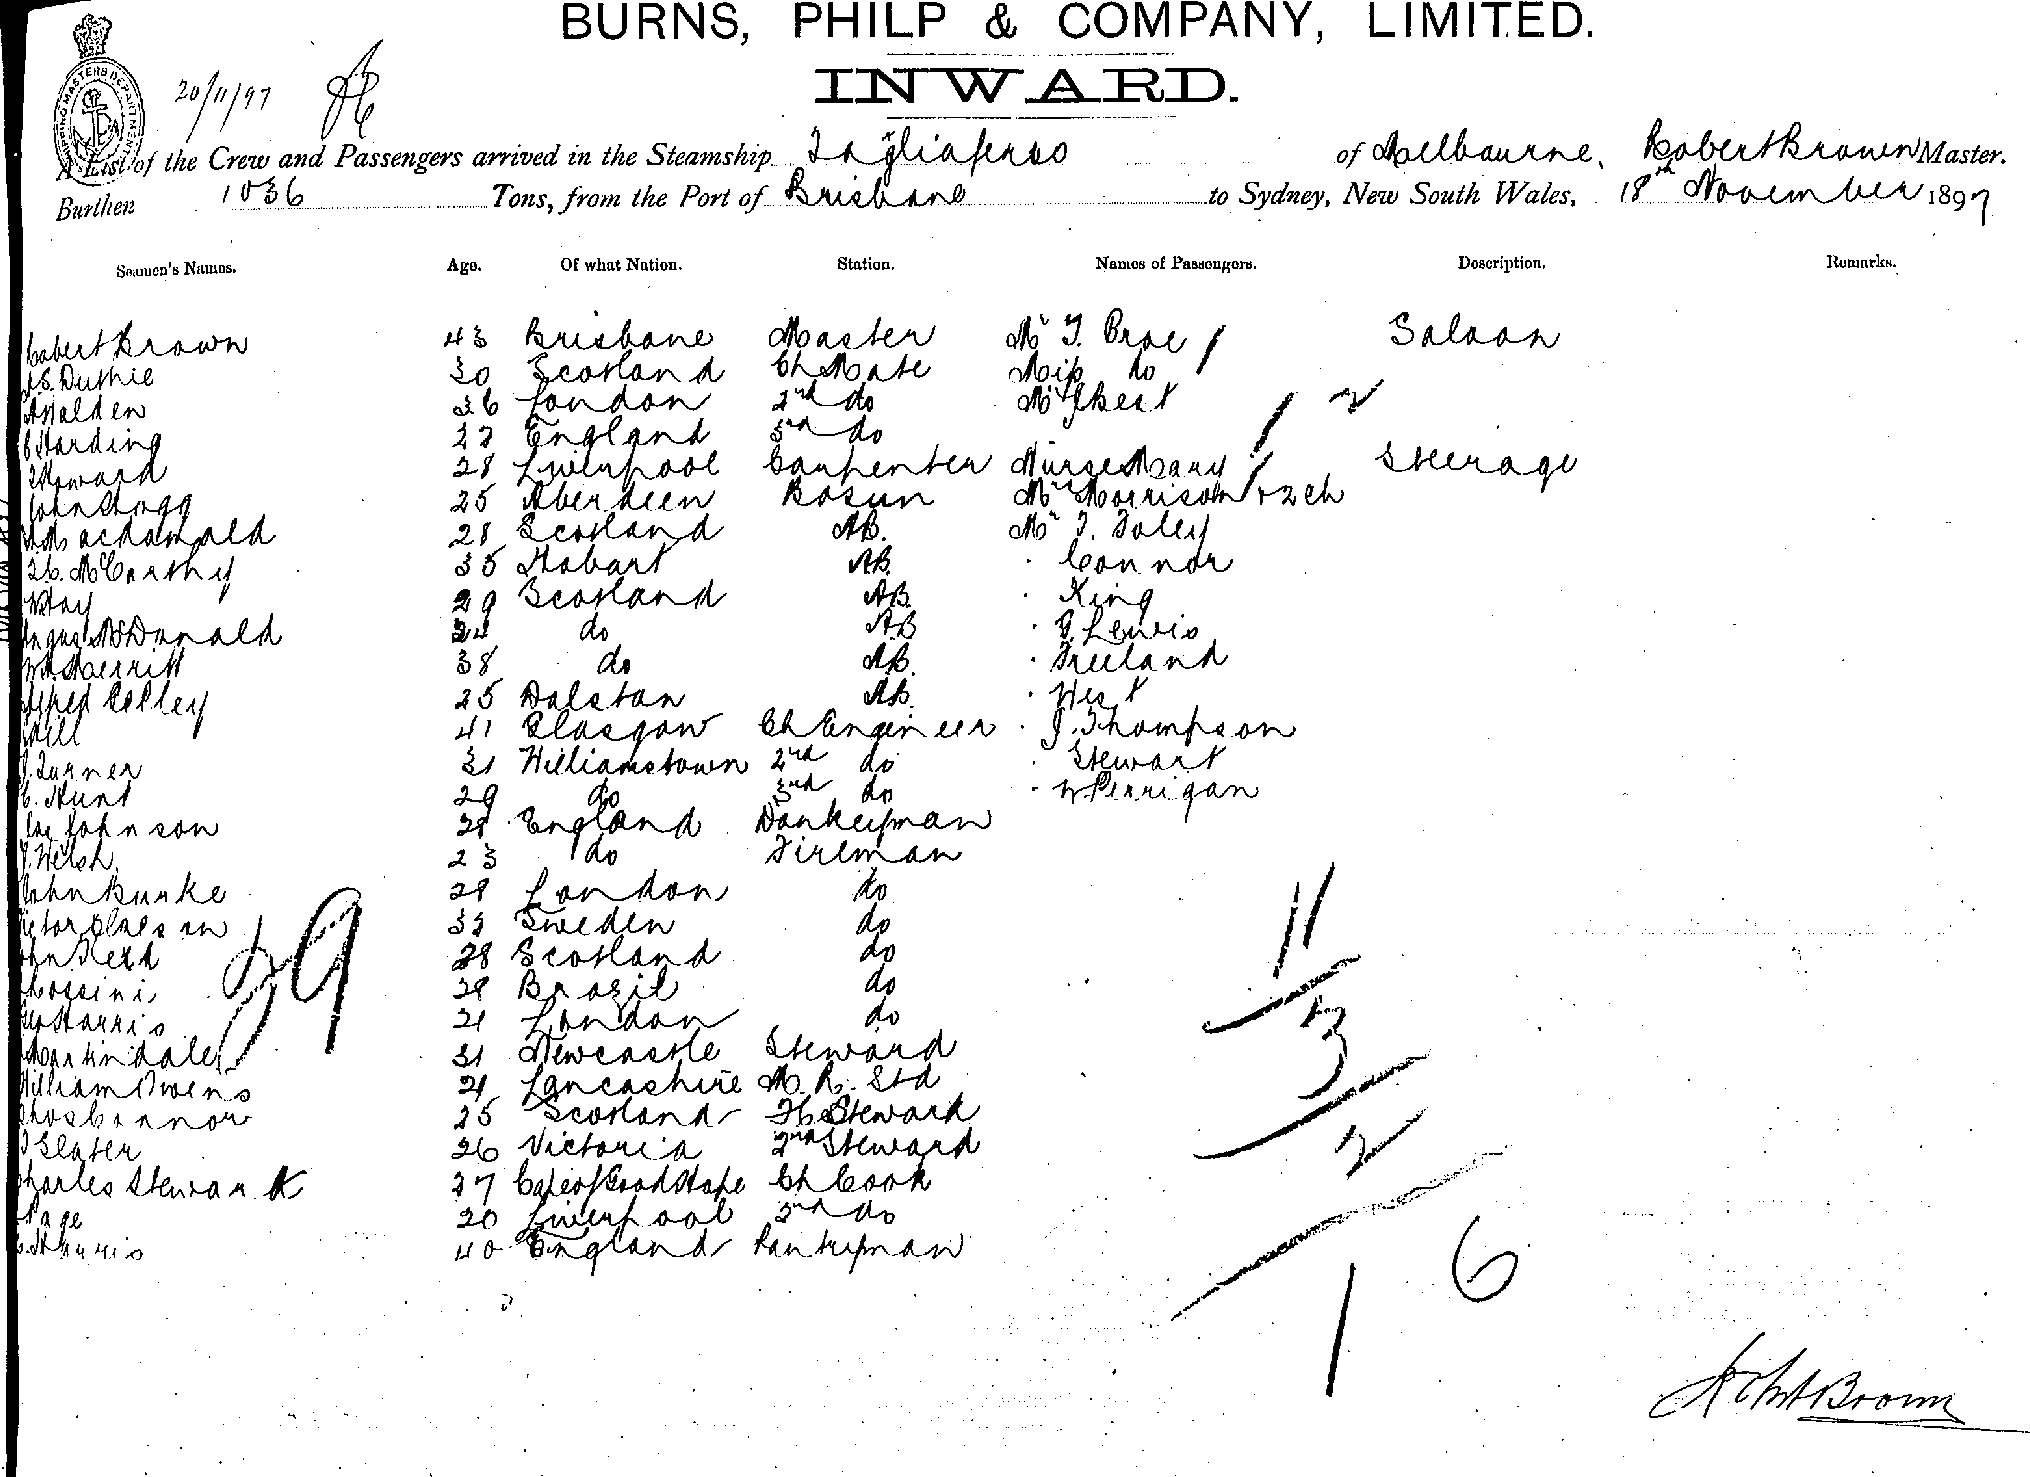 BURNS, PHILP & COMPANY, LIMITED.
INWARD.
SHIPPING MASTERS DEPARTMENT
20/11/97
A List of the Crew and Passengers arrived in the Steamship Tagliaferro of Melbourne, Robert Brown Master.
Burthen 1036 Tons, from the Port of Brisbane to Sydney, New South Wales, 18th November 1897
Seamen's Names. Age. Of what Nation. Station. Names of Passengers. Description. Remarks.
Robert Brown 43 Brisbane Master Mr T. Broe Saloon
Duthie 30 Scotland Ch Mate Miss do
Walden 36 London 2nd do Mr 2
Harding 27 England 3rd do
Howard 28 Liverpool Carpenter Nurse Mary Steerage
John 25 Aberdeen Bosun Mrs Morrison + 2 ch
Macdonald 28 Scotland AB. Mr T. Foley
McCarthy 35 Hobart AB. Connor
Hay 29 Scotland AB. King
Angus McDonald 24 do AB G. Lewis
Merritt 38 do AB. Freeland
Alfred 25 Dalston AB. West
41 Glasgow Ch Engineer J. Thompson
Turner 31 Williamstown 2nd do Stewart
Hunt 29 do 3rd do W Perrigan
Johnson 28 England Donkeyman
Welsh 23 do Fireman
John Burke 28 London do
Sweden do
John 28 Scotland do
Rossini 28 Brazil do
Harris 21 London do
Martindale 31 Newcastle Steward
William Owens 21 Lancashire M. R. Std
Thos Connor 25 Scotland F. C. Steward
Slater 26 Victoria 2nd Steward
Charles Stewart 27 Cape of Good Hope Ch Cook
Page 20 Liverpool 2nd do
Harris 40 England Pantryman
29
11
3
2
16
Robt Brown